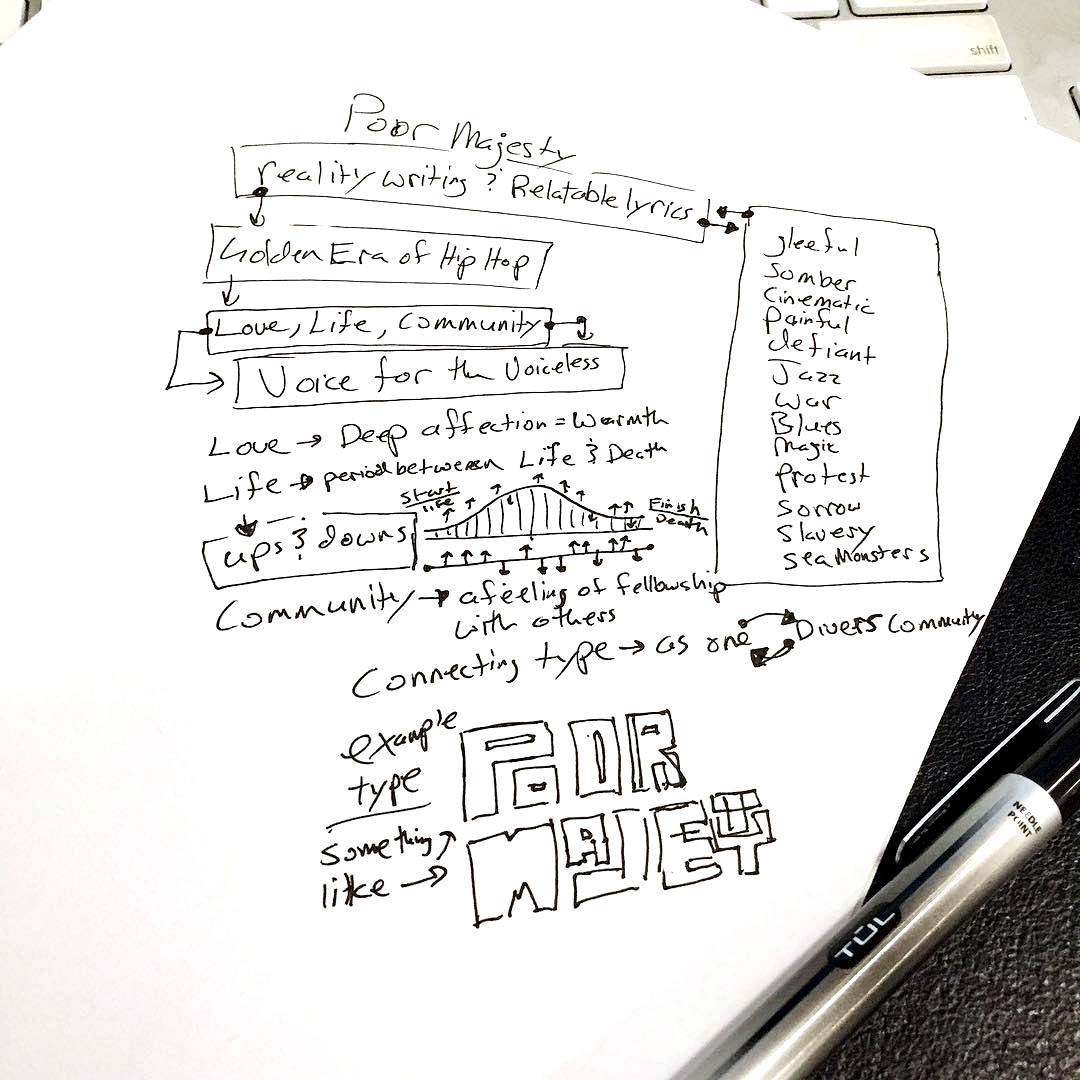 shift
Poor Majesty
reality writing ? Relatable lyrics
Golden Era of Hip Hop
Love, Life, Community
Voice for the Voiceless
Love → Deep affection = Warmth
Life → period between Life & Death
Start
life
Finish
Death
ups & downs
Community → a feeling of fellowship
with others
Connecting type → as one
Divers Community
gleeful
Somber
Cinematic
Painful
defiant
Jazz
War
Blues
Magic
Protest
Sorrow
Slavery
Sea Monsters
example
type
something
like →
POOR
MAJESTY
NEEDLE
POINT
TUL